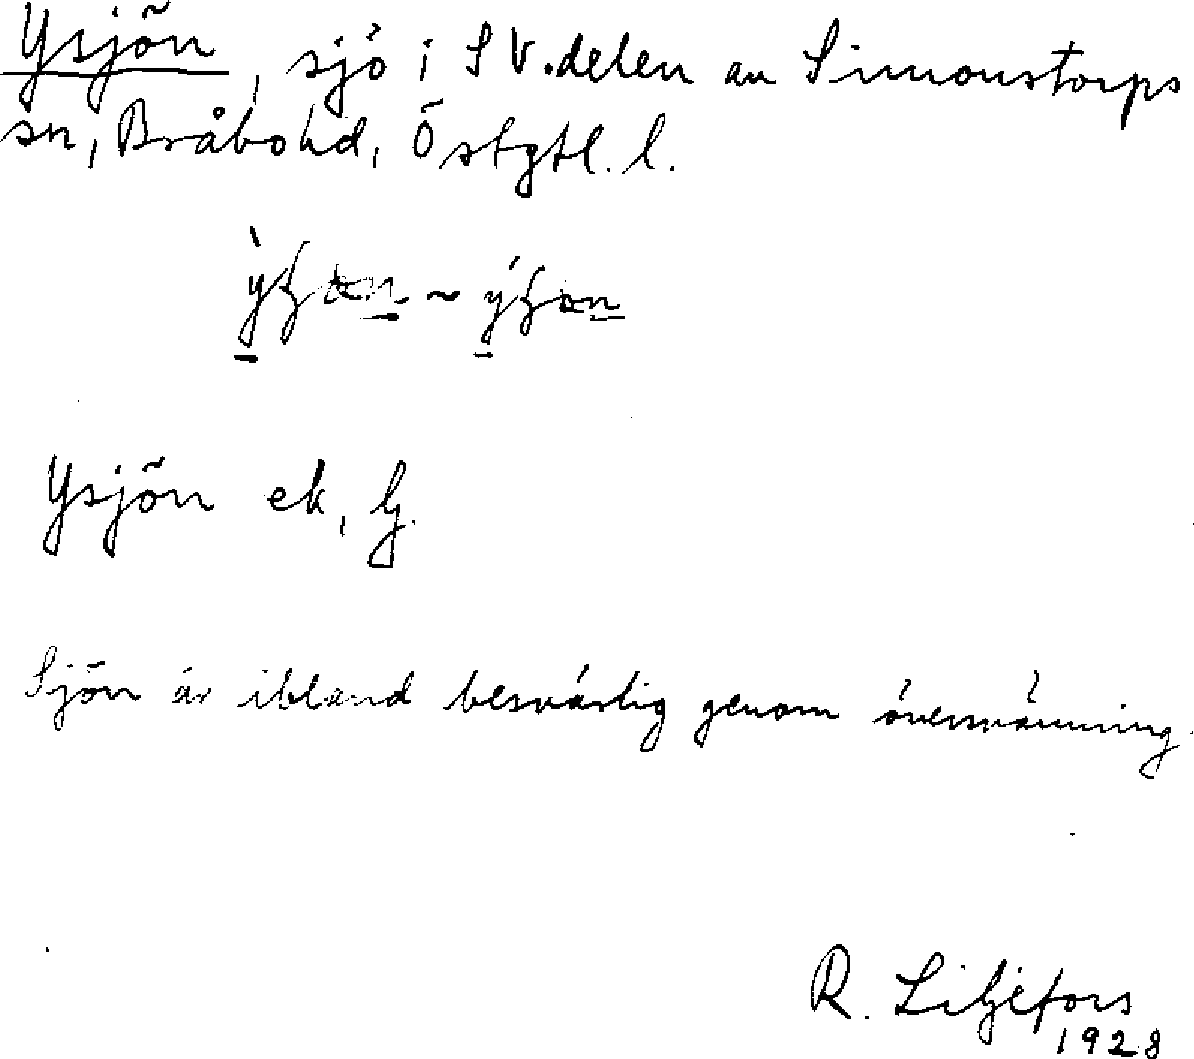 Ysjön, sjö i SV.delen av Simonstorps
sn, Bråbo hd, Östgtl. l.
Ysjön ek, G.
Sjön är ibland besvärlig genom översvämning.
R. Liljefors
1928